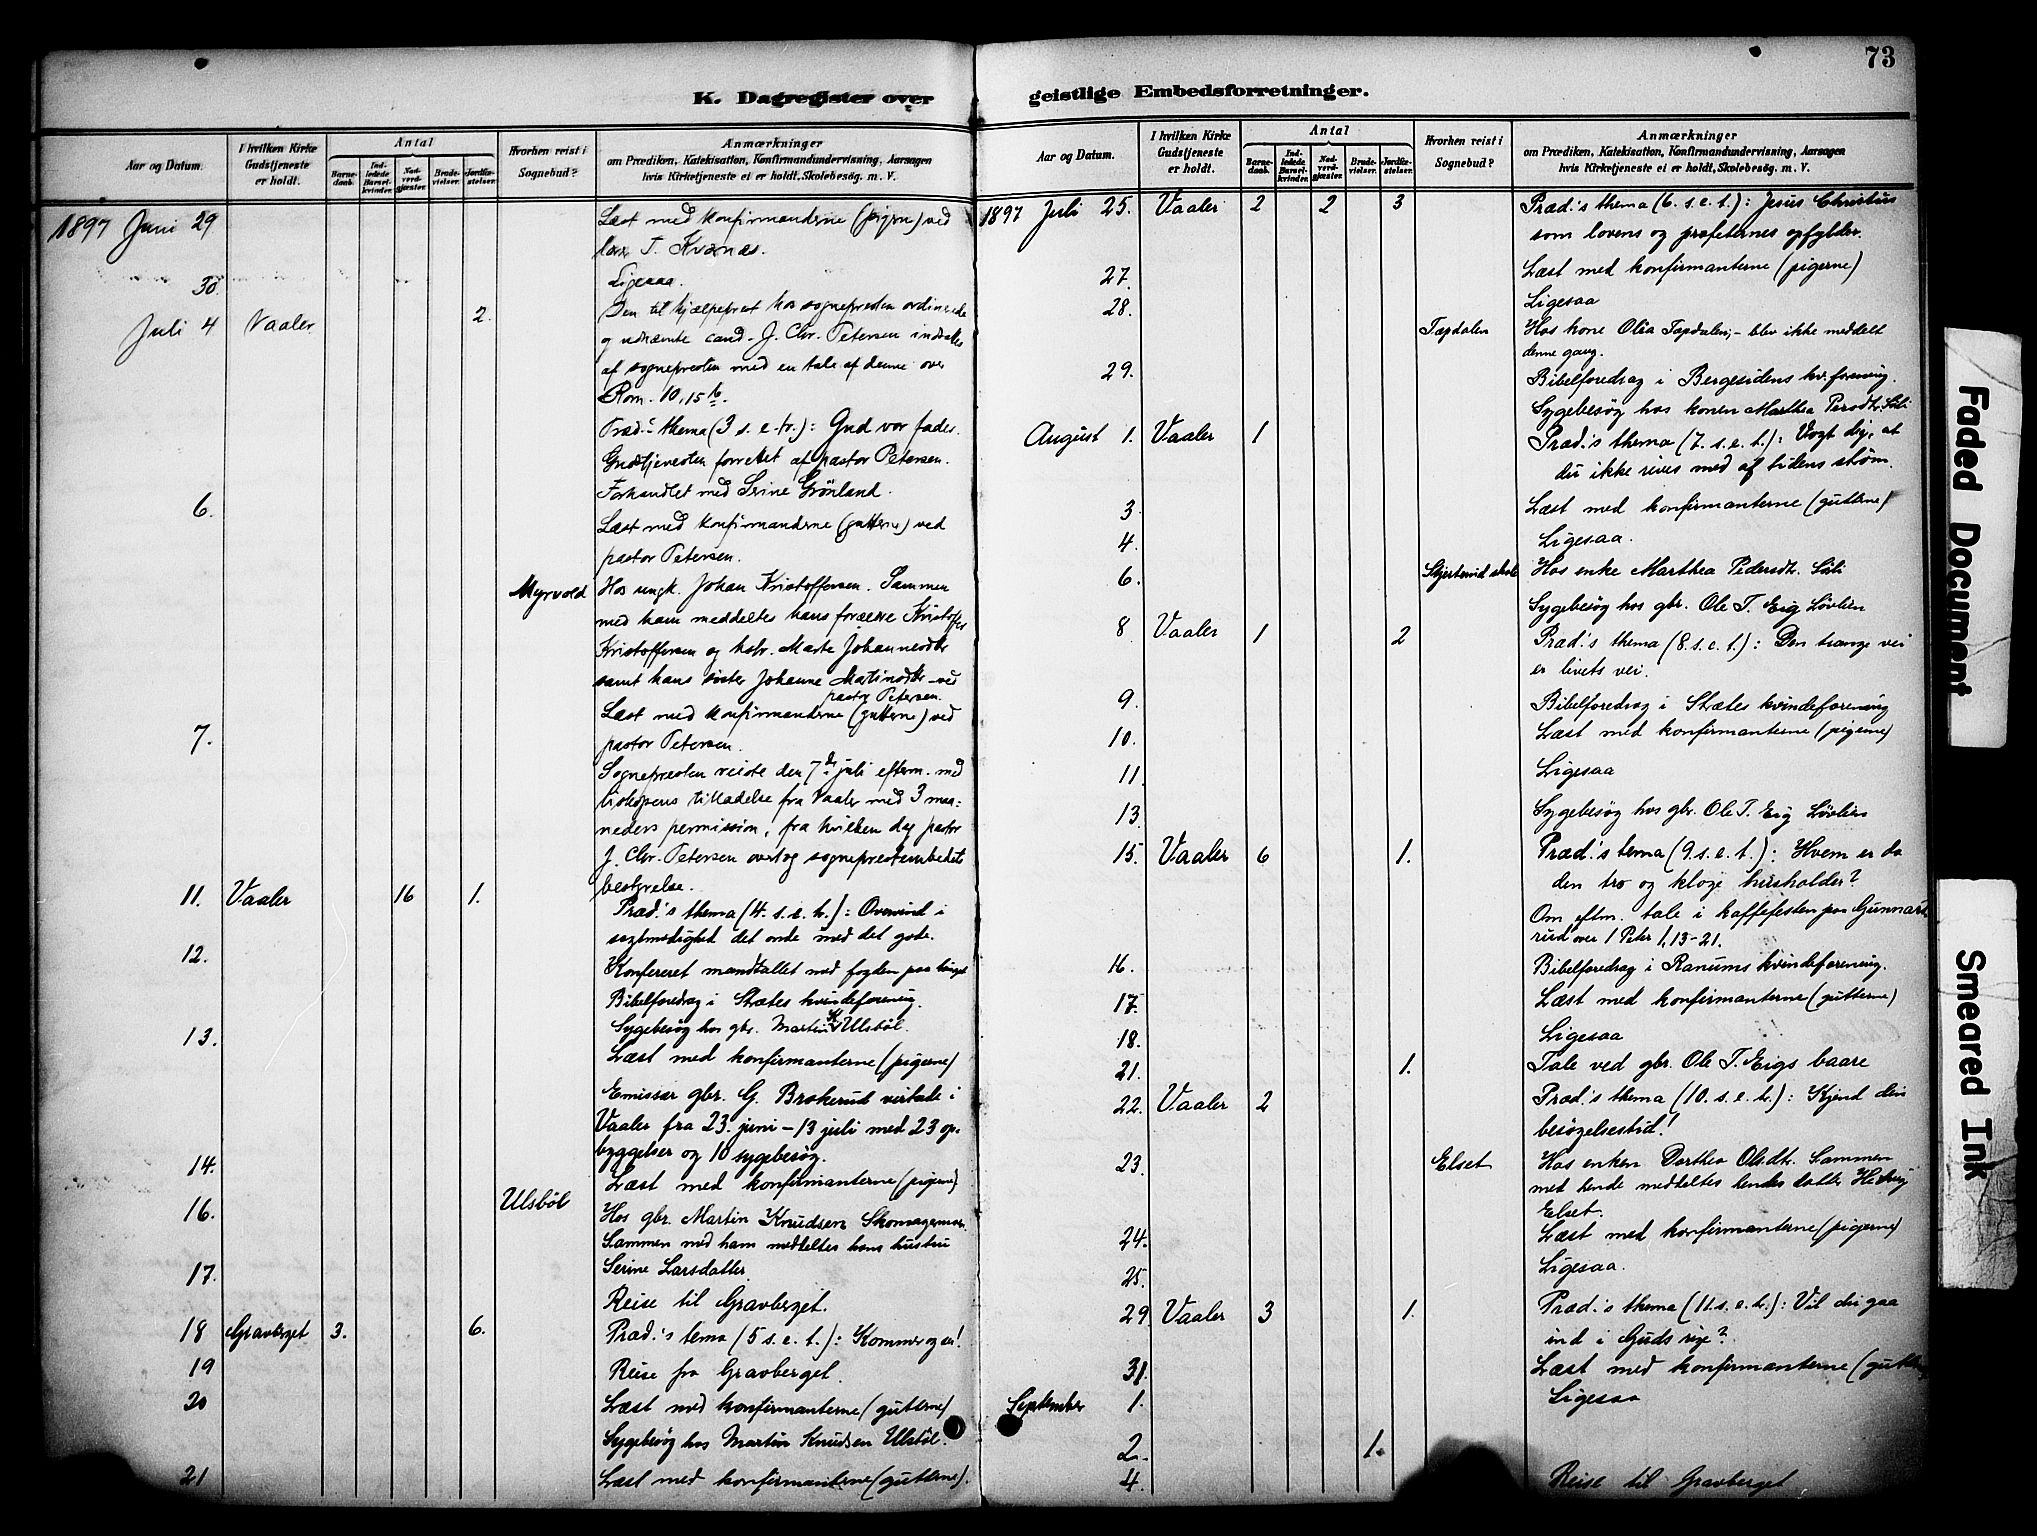 73
K. Dagregister over geistlige Embedsforretninger.
Aar og Datum.
I hvilken Kirke Gudstjeneste er holdt.
Antal
Barne-daab.
Ind-ledede Barsel-kvinder.
Nad-verd-gjæster.
Brude-vielser.
Jordfæ-stelser.
Hvorhen reist i Sognebud?
Anmærkninger
om Prædiken, Katekisation, Konfirmandundervisning, Aarsagen
hvis Kirketjeneste ei er holdt, Skolebesøg. m. V.
1897 Juni 29 Læst med konfirmanderne (pigern) ved
T. Kvænæs.
30. Ligesaa.
Juli 4 Vaaler 2. Den til hjælpeprest hos sognepresten ordinerede
og udnævnte cand. J. Chr. Petersen indsattes
af sognepresten med en tale af denne over
Rom. 10,15
Præd.s thema (3 s. e. tr.): Gud vor fader.
Gudstjenesten forrettet af pastor Petersen.
Forhandlet med Serine Grønland.
6. Læst med konfirmanderne (gutterne) ved
pastor Petersen.
Myrvold Hos ungk. Johan Kristoffersen. Sammen
med ham meddeltes hans forældre Kristoffer
Kristoffersen og hstr. Marte Johannesdtr
samt hans søster Johanne Martinsdtr - ved
pastor Petersen.
7. Læst med konfirmanderne (gutterne) ved
pastor Petersen.
Sognepresten reiste den 7de juli efterm. med
biskopens tilladelse fra Vaaler med 3 maa=
neders permission, fra hvilken dag pastor
J. Chr. Petersen overtog sogneprestembedets
bestyrelse.
11. Vaaler 16 1. Præd.'s thema (4. s. e. tr.): Overvind i
sagtmodighed det onde med det gode.
12. Konfereret mandtallet med fogden paa tinget
Bibelforedrag i Strætes kvindeforening.
Sygebesøg hos gbr. Martin K. Ulsbøl.
13. Læst med konfirmanterne (pigerne)
Emissær gbr. G. Brokerud virkede i
Vaaler fra 23. juni – 13 juli med 23 op-
byggelser og 10 sygebesøg.
14. Læst med konfirmanterne (pigerne)
16. Ulsbøl Hos gbr. Martin Knudsen
Sammen med ham meddeltes hans hustru
Serine Larsdatter
17. Reise til Gravberget.
18 Gravberget 3. 6. Præd.'s tema (5 s. e. t.): Kommer og se!
19 Reise fra Gravberget.
20 Læst med konfirmanterne (gutterne)
Sygebesøg hos Martin Knudsen Ulsbøl.
21 Læst med konfirmanterne (gutterne).
Aar og Datum.
I hvilken Kirke Gudstjeneste er holdt.
Antal
Barne-daab.
Ind-ledede Barsel-kvinder.
Nad-verd-gjæster.
Brude-vielser.
Jordfæ-stelser.
Hvorhen reist i Sognebud?
Anmærkninger
om Prædiken, Katekisation, Konfirmandundervisning, Aarsagen
hvis Kirketjeneste ei er holdt, Skolebesøg. m. V.
1897 Juli 25. Vaaler 2 2 3 Præd.'s thema (6. s. e. t.): Jesus Christus
som lovens og profeternes opfylder.
27. Læst med konfirmanterne (pigerne)
28. Ligesaa
Tøpdalen Hos kone Olia Tøpdalen; – blev ikke meddelt
denne gang.
29. Bibelforedrag i Bergesidens kv.forening.
Sygebesøg hos konen Marthea
August 1. Vaaler 1 Præd.'s thema (7. s. e. t.): Vogt dig, at
du ikke rives med af tidens strøm.
3 Læst med konfirmanterne (gutterne)
4. Ligesaa.
6. Hos enke Marthea Pedersdtr.
Sygebesøg hos gbr. Ole T. Eig Løvlien
8 Vaaler 1 2 Præd.'s thema (8. s. e. t.): Den trange vei
er livets vei.
9. Bibelforedrag i Strætes kvindeforening
10. Læst med konfirmanterne (pigerne)
11. Ligesaa
13 Sygebesøg hos gbr. Ole T. Eig Løvlien
15. Vaaler 6 1. Præd.'s tema (9. s. e. t.): Hvem er da
den tro og kloge husholder?
Om eftm. tale i kaffefesten paa Gunnars
rud over 1 Peter 1,13-21.
16. Bibelforedrag i Ranums kvindeforening.
17. Læst med konfirmanterne (gutterne)
18. Ligesaa
21. 1. Tale ved gbr. Ole T. Eigs baare
22. Vaaler 2 Præd.'s thema (10. s. e. t.): Kjend din
besøgelsestid!
23. Elset Hos enken Dorthea Olsdtr. Sammen
med hende meddeltes hendes datter Hedvig
Elset.
24. Læst med konfirmanterne (pigerne)
25. Ligesaa.
29 Vaaler 3 1. Præd.'s thema (11. s. e. t.): Vil du gaa
ind i Guds rige?
31. Læst med konfirmanterne (gutterne)
September 1. Ligesaa
2. 1.
4. Reise til Gravberget
Faded Document
Smeared Ink